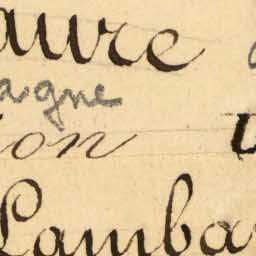 aure
agne
ion
Lamba